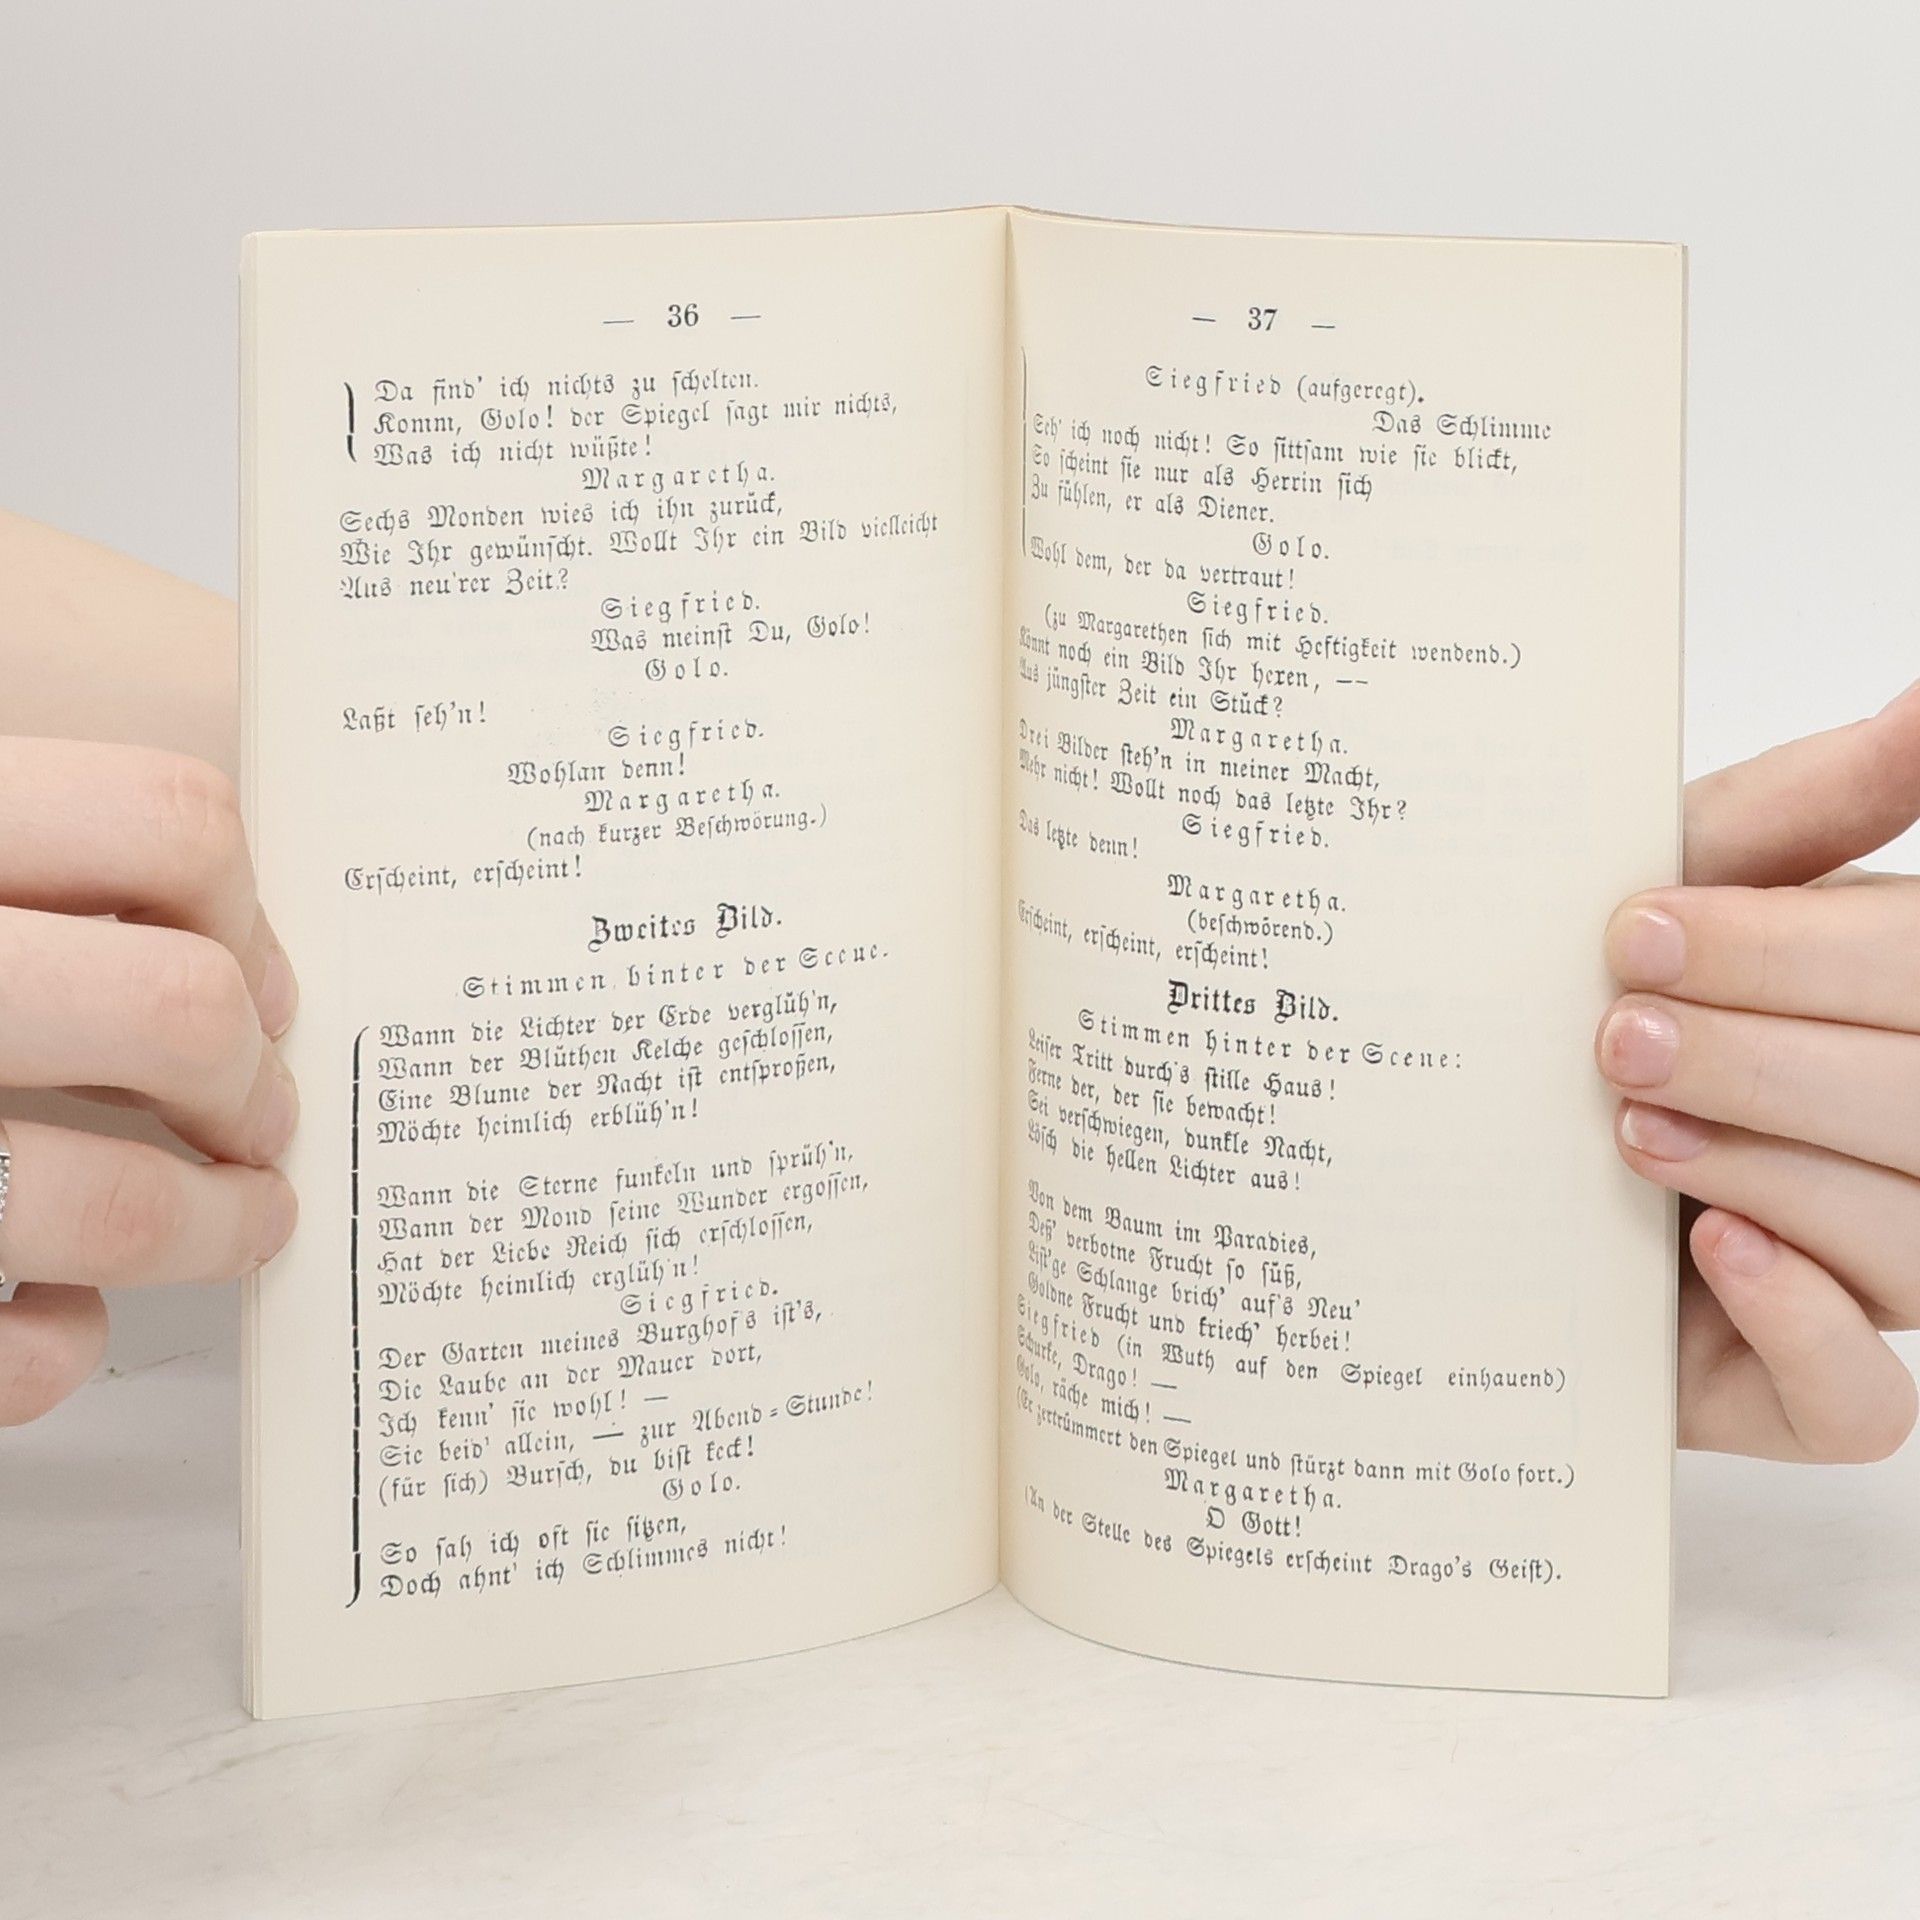 — 36 —
Da find' ich nichts zu schelten.
Komm, Golo! der Spiegel sagt mir nichts,
Was ich nicht wüßte!
Margaretha.
Sechs Monden wies ich ihn zurück,
Wie Ihr gewünscht. Wollt Ihr ein Bild vielleicht
Aus neu'rer Zeit?
Siegfried.
Was meinst Du, Golo!
Golo.
Laßt seh'n!
Siegfried.
Wohlan denn!
Margaretha.
(nach kurzer Beschwörung.)
Erscheint, erscheint!
Zweites Bild.
Stimmen hinter der Scene.
Wann die Lichter der Erde verglüh'n,
Wann der Blüthen Kelche geschlossen,
Eine Blume der Nacht ist entsproßen,
Möchte heimlich erblüh'n!
Wann die Sterne funkeln und sprüh'n,
Wann der Mond seine Wunder ergossen,
Hat der Liebe Reich sich erschlossen,
Möchte heimlich erglüh'n!
Siegfried.
Der Garten meines Burghof's ist's,
Die Laube an der Mauer dort,
Ich kenn' sie wohl! —
Sie beid' allein, — zur Abend=Stunde!
(für sich) Bursch, du bist keck!
Golo.
So sah ich oft sie sitzen,
Doch ahnt' ich Schlimmes nicht!
— 37 —
Siegfried (aufgeregt).
Das Schlimme
Seh' ich noch nicht! So sittsam wie sie blickt,
So scheint sie nur als Herrin sich
Zu fühlen, er als Diener.
Golo.
Wohl dem, der da vertraut!
Siegfried.
(zu Margarethen sich mit Heftigkeit wendend.)
Könnt noch ein Bild Ihr hexen, ——
Aus jüngster Zeit ein Stück?
Margaretha.
Drei Bilder steh'n in meiner Macht,
Mehr nicht! Wollt noch das letzte Ihr?
Siegfried.
Das letzte denn!
Margaretha.
(beschwörend.)
Erscheint, erscheint, erscheint!
Drittes Bild.
Stimmen hinter der Scene:
Leiser Tritt durch's stille Haus!
Ferne der, der sie bewacht!
Sei verschwiegen, dunkle Nacht,
Lösch die hellen Lichter aus!
Von dem Baum im Paradies,
Deß' verbotne Frucht so süß,
List'ge Schlange brich' auf's Neu'
Goldne Frucht und kriech' herbei!
Siegfried (in Wuth auf den Spiegel einhauend)
Schurke, Drago! —
Golo, räche mich! —
(Er zertrümmert den Spiegel und stürzt dann mit Golo fort.)
Margaretha.
O Gott!
(An der Stelle des Spiegels erscheint Drago's Geist).